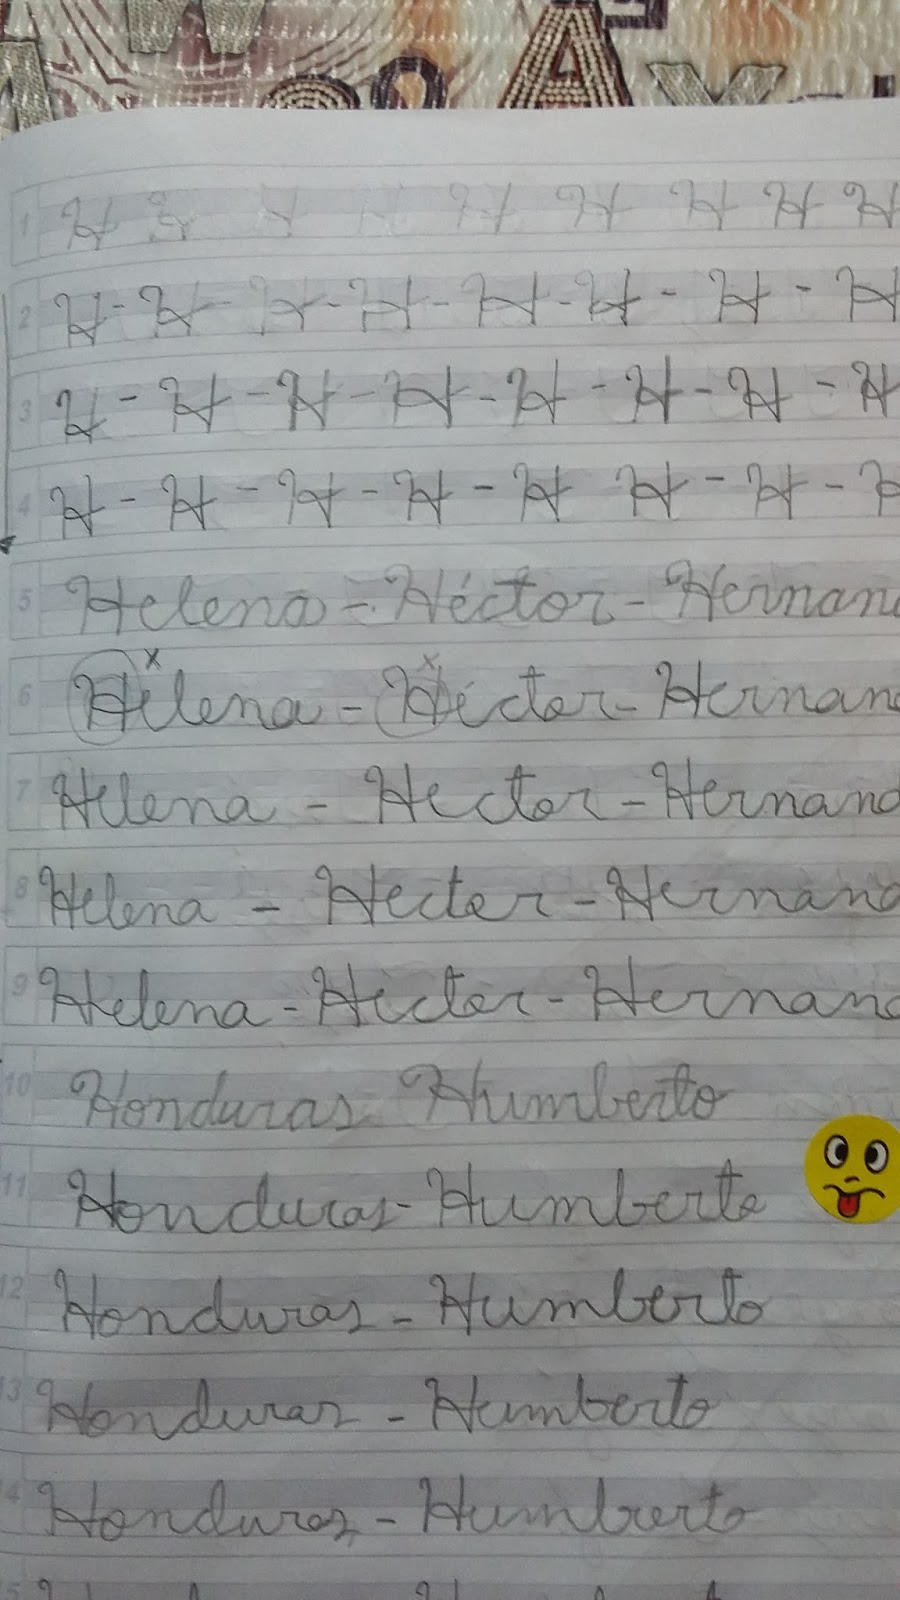 1 H H H H H H H H H
2 H - H - H - H - H - H - H - H
3 H - H - H - H - H - H - H - H
4 H - H - H - H - H H - H - H
5 Helena - Héctor - Hernan
6 Helena - Héctor - Hernan
7 Helena - Hector - Hernand
8 Helena - Hecter - Hernand
9 Helena - Hector - Hernand
10 Honduras Humberto
11 Honduras - Humberto
12 Honduras - Humberto
13 Honduras - Humberto
14 Honduras - Humberto